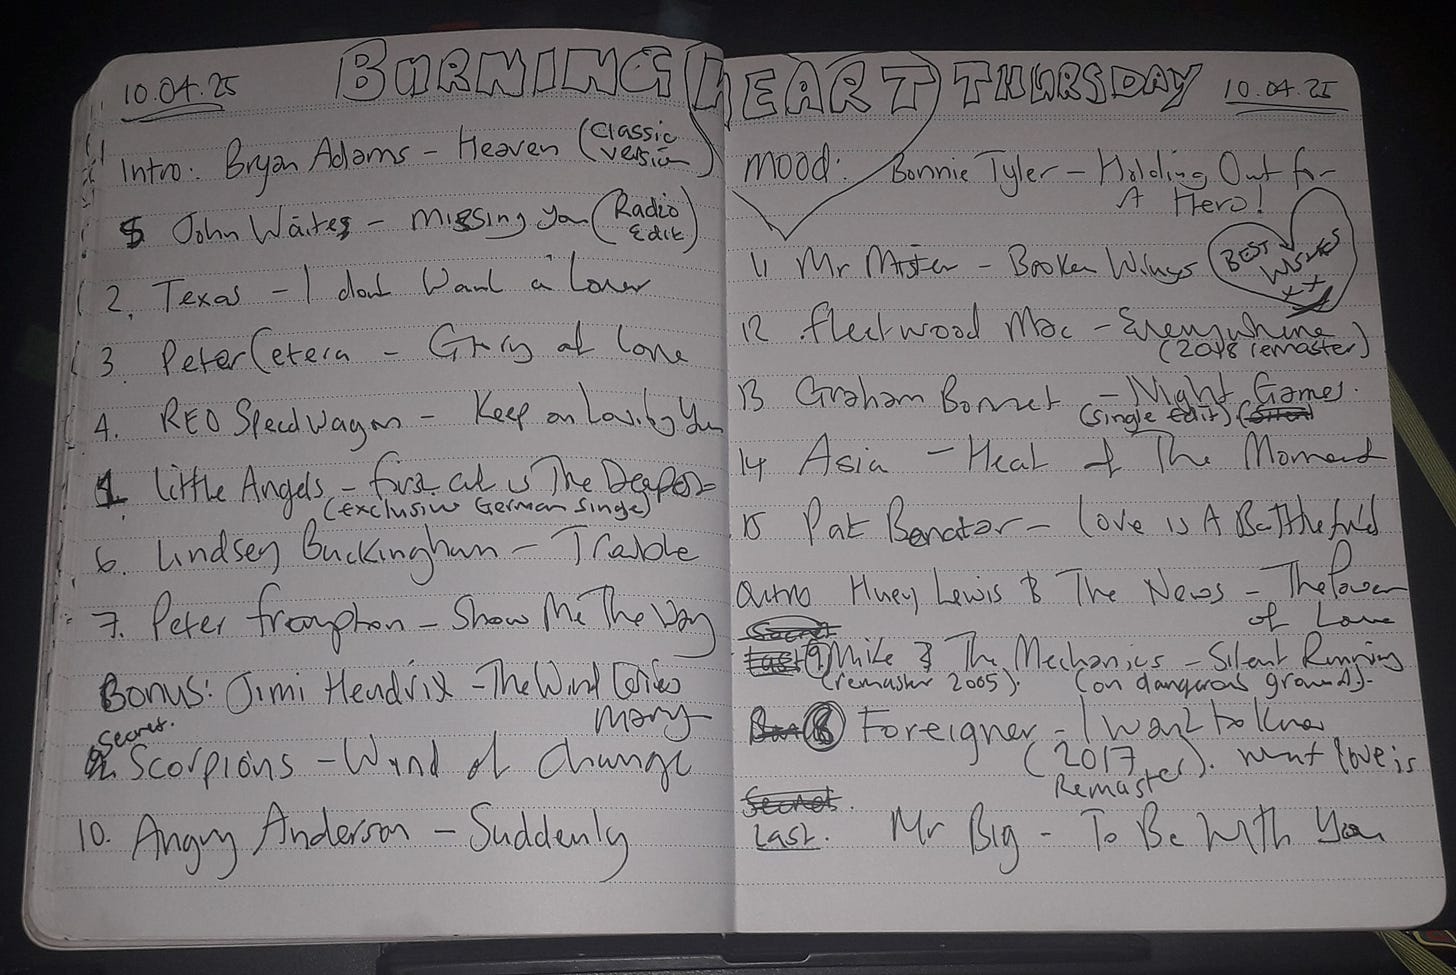 10.04.25
BURNING HEART THURSDAY
10.04.25
Intro: Bryan Adams - Heaven (Classic
Version)
5 John Waites - Missing You (Radio
Edit)
2. Texas - I dont Want a Lover
3. Peter Cetera - Glory of Love
4. REO Speedwagon - Keep on Loving You
1. Little Angels - First cut is The Deepest
(exclusive German Single)
6. Lindsey Buckingham - Trouble
7. Peter Frampton - Show Me The Way
Bonus: Jimi Hendrix - The Wind Cries
Mary
Secret.
Scorpions - Wind of Change
10. Angry Anderson - Suddenly
Mood: Bonnie Tyler - Holding Out for
A Hero!
11 Mr Mister - Broken Wings
BEST
WISHES
x +
12 Fleetwood Mac - Everywhere
(2018 remaster)
13 Graham Bonnet - Night Games.
(single edit)
14 Asia - Heat of The Moment
15 Pat Benatar - Love is A Battlefield
Outro Huey Lewis & The News - The Power
of Love
Secret
Last 9) Mike & The Mechanics - Silent Running
(remaster 2005). (on dangerous ground).
8 Foreigner - I Want to Know
(2017 What love is
Remaster).
Secret.
Last. Mr Big - To Be With You